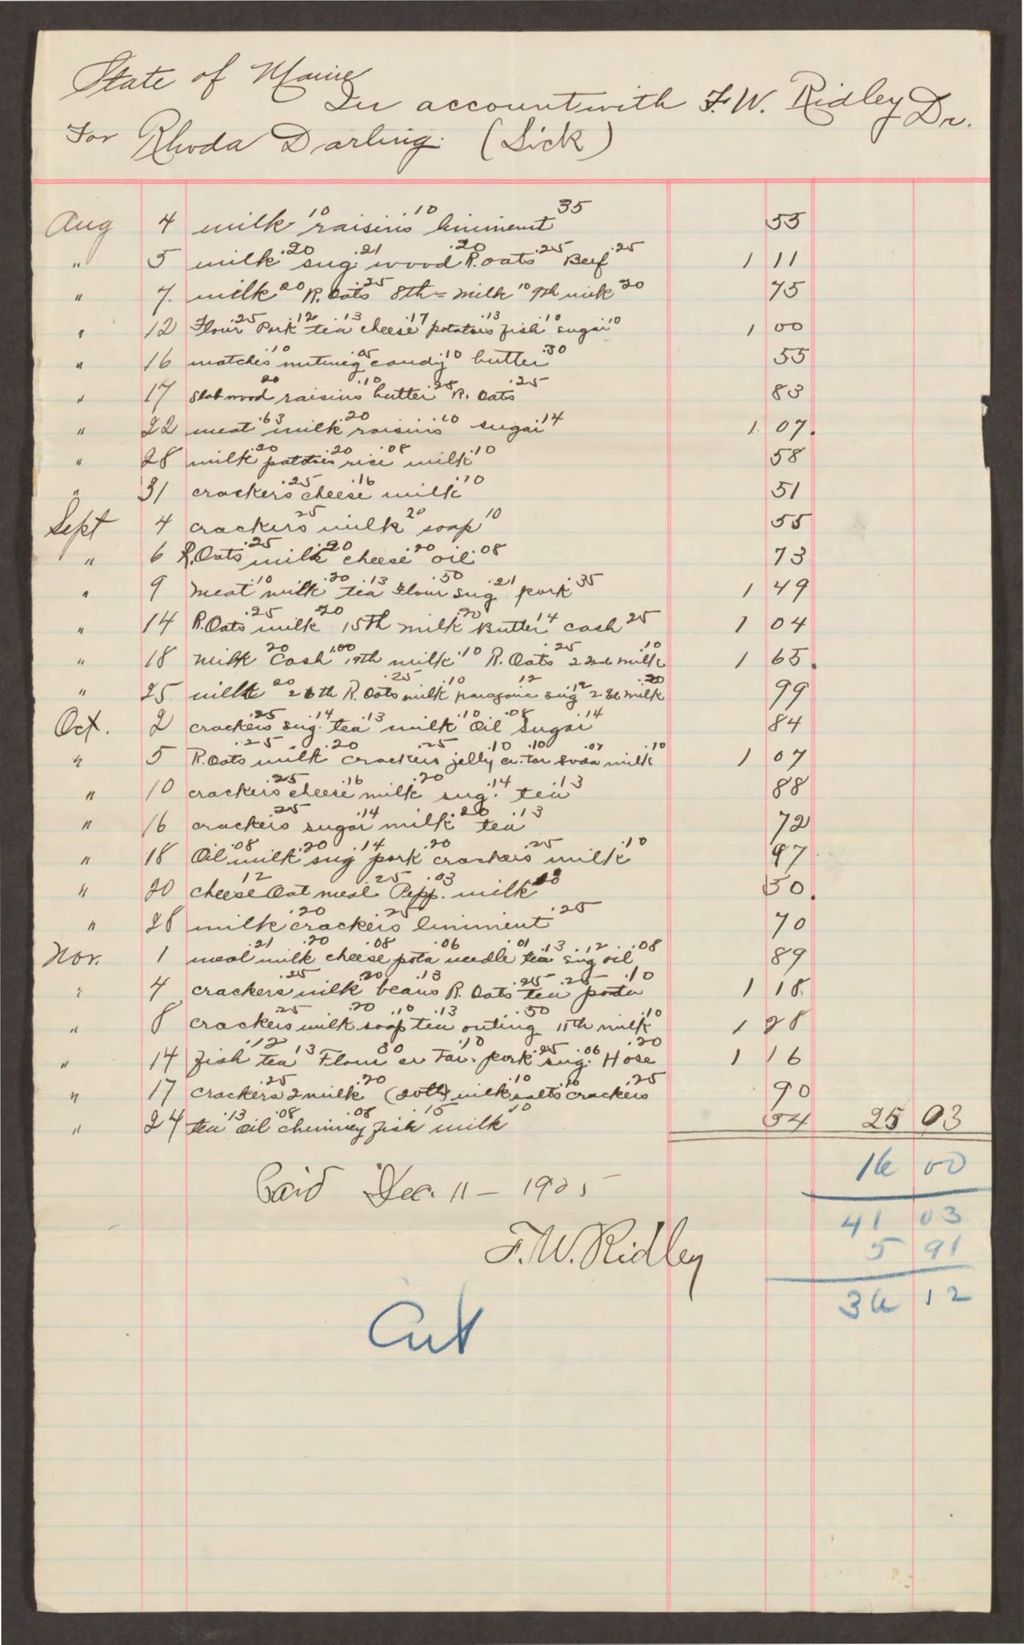 State of Maine
In account with F.W. Ridley Dr.
For Rhoda Darling. (Sick)
Aug 4 milk .10 raisins .10 liniment 35 55
" 5 milk .20 sug. .21 wood .20 R.oats .25 Beef .25 1 11
" 7. milk 20 R.Oats .25 8th = milk 10 9th milk 20 75
" 12 Flour .25 Pork .12 tea .13 cheese .17 potatoes .13 fish .10 sugar 10 1 00
" 16 matches .10 nutmeg .05 candy 10 butter .30 55
" 17 Slabwood 20 raisins .10 butter 28 R. Oats .25 83
" 22 meat .63 milk .20 raisins .10 sugar .14 1 07.
" 28 milk .20 potatoes .20 rice .08 milk .10 58
" 31 crackers .25 cheese .16 milk .10 51
Sept 4 crackers .25 milk 20 soap .10 55
" 6 R.Oats .25 milk .20 cheese .20 oil .08 73
" 9 meat .10 milk .20 tea .13 Flour .50 sug .21 pork .35 1 49
" 14 R.Oats .25 milk .20 15th milk .20 Butter .14 cash 25 1 04
" 18 milk .20 Cash .00 19th milk .10 R.Oats .25 22nd milk .10 1 65.
" 25 milk 20 26th R.Oats .25 milk .10 .12 sug .12 28 milk .20 99
Oct. 2 crackers .25 sug. .14 tea .13 milk .10 Oil .08 Sugar .14 84
" 5 R.Oats .25 milk .20 crackers .25 jelly .10 cr.tar .10 soda .07 milk .10 1 07
" 10 crackers .25 cheese .16 milk .20 sug. .14 tea .13 88
" 16 crackers .25 sugar .14 milk .20 tea .13 72
" 18 Oil .08 milk .20 sug .14 pork .20 crackers .25 milk .10 97
" 20 cheese .12 Oat meal .25 Pepp. .03 milk 50.
" 28 milk .20 crackers .25 liniment .25 70
Nov. 1 meal .21 milk .20 cheese .08 pota .06 needle .01 tea .13 sug .12 oil .08 89
" 4 crackers .25 milk .20 beans .13 R.Oats .25 tea .25 .10 1 18
" 8 crackers .25 milk .20 soap .10 tea .13 outing .50 11th milk .10 1 28
" 14 fish .12 tea .13 Flour .30 cr Tar. .10 pork .25 sug. .06 Hose .20 1 16
" 17 crackers .25 2 milk .20 (20th) milk .10 salts .10 crackers .25 90
" 24 tea .13 Oil .08 chimney .08 fish .15 milk .10 54 25 03
16 00
Paid Dec. 11 - 1925
41 03
F.W. Ridley
5 91
36 12
Cut